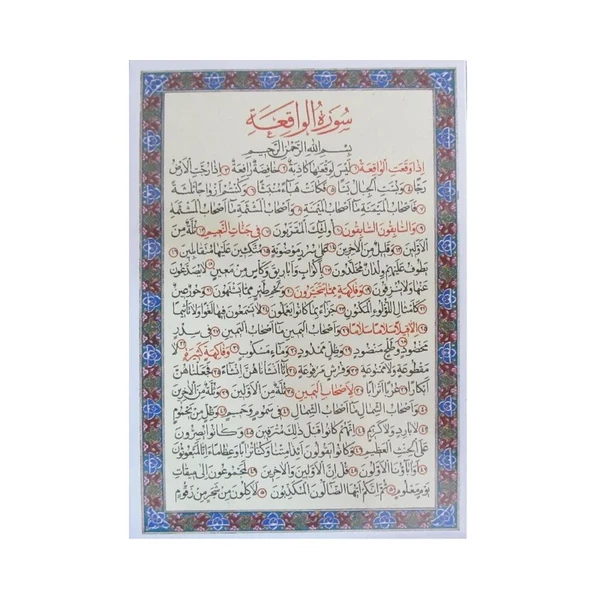 سورة الواقعة
بسم الله الرحمن الرحيم
إذا وقعت الواقعة ١ ليس لوقعتها كاذبة ٢ خافضة رافعة ٣ إذا رجت الأرض
رجا ٤ وبست الجبال بسا ٥ فكانت هباء منبثا ٦ وكنتم أزواجا ثلثة
٧ فأصحاب الميمنة ما أصحاب الميمنة ٨ وأصحاب المشئمة ما أصحاب المشئمة
٩ والسابقون السابقون ١٠ أولئك المقربون ١١ في جنات النعيم ١٢ ثلة من
الأولين ١٣ وقليل من الآخرين ١٤ على سرر موضونة ١٥ متكئين عليها متقابلين ١٦
يطوف عليهم ولدان مخلدون ١٧ بأكواب وأباريق وكأس من معين ١٨ لا يصدعون
عنها ولا ينزفون ١٩ وفاكهة مما يتخيرون ٢٠ ولحم طير مما يشتهون ٢١ وحور عين
٢٢ كأمثال اللؤلؤ المكنون ٢٣ جزاء بما كانوا يعملون ٢٤ لا يسمعون فيها لغوا ولا تأثيما
٢٥ إلا قيلا سلاما سلاما ٢٦ وأصحاب اليمين ما أصحاب اليمين ٢٧ في سدر
مخضود ٢٨ وطلح منضود ٢٩ وظل ممدود ٣٠ وماء مسكوب ٣١ وفاكهة كثيرة ٣٢ لا
مقطوعة ولا ممنوعة ٣٣ وفرش مرفوعة ٣٤ إنا أنشأناهن إنشاء ٣٥ فجعلناهن
أبكارا ٣٦ عربا أترابا ٣٧ لأصحاب اليمين ٣٨ ثلة من الأولين ٣٩ وثلة من الآخرين
٤٠ وأصحاب الشمال ما أصحاب الشمال ٤١ في سموم وحميم ٤٢ وظل من يحموم
٤٣ لا بارد ولا كريم ٤٤ إنهم كانوا قبل ذلك مترفين ٤٥ وكانوا يصرون
على الحنث العظيم ٤٦ وكانوا يقولون أئذا متنا وكنا ترابا وعظاما أئنا لمبعوثون
٤٧ أو آباؤنا الأولون ٤٨ قل إن الأولين والآخرين ٤٩ لمجموعون إلى ميقات
يوم معلوم ٥٠ ثم إنكم أيها الضالون المكذبون ٥١ لآكلون من شجر من زقوم